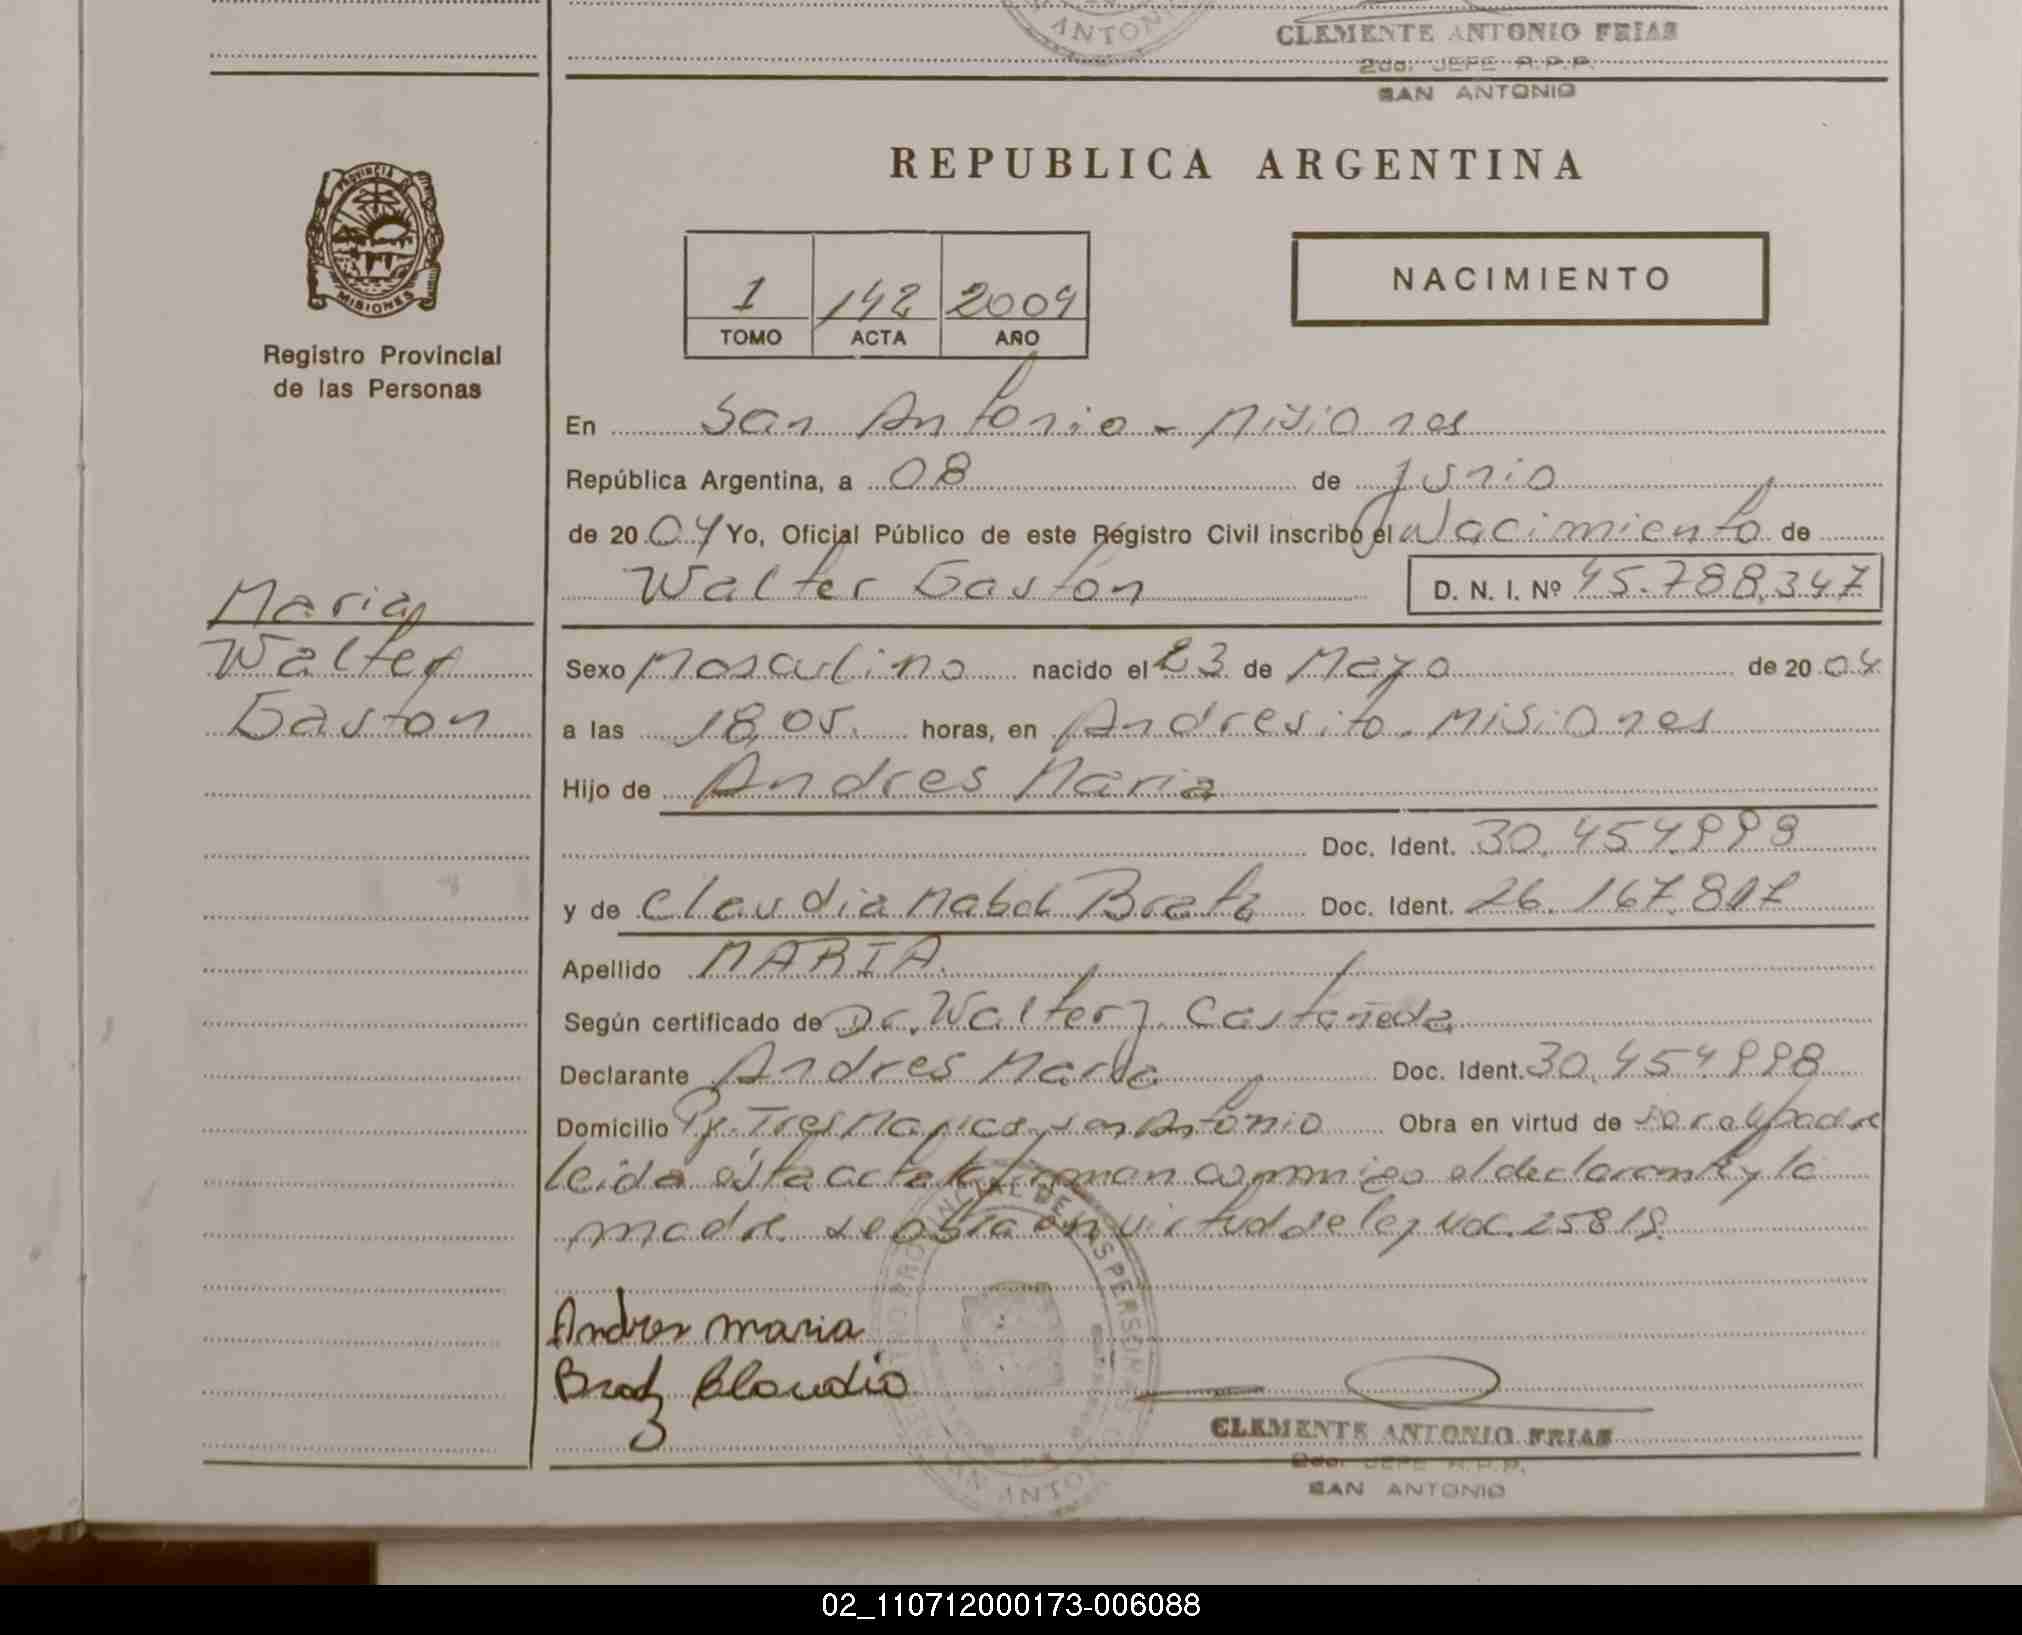 SAN ANTONIO
CLEMENTE ANTONIO FRIAS
2do. JEFE R.P.P.
SAN ANTONIO
PROVINCIA DE
MISIONES
Registro Provincial
de las Personas
REPUBLICA ARGENTINA
1 142 2004
TOMO ACTA AÑO
NACIMIENTO
En San Antonio - Misiones
República Argentina, a 08 de Junio
de 20 04 Yo, Oficial Público de este Registro Civil inscribo el Nacimiento de
Walter Gaston D. N. I. Nº 45.788.347
Maria
Walter
Gaston
Sexo Masculino nacido el 23 de Mayo de 20 04
a las 18,05. horas, en Andresito. Misiones
Hijo de Andres Maria
Doc. Ident. 30.454.998
y de Claudia Mabel Bratz Doc. Ident. 26.167.817
Apellido MARIA.
Según certificado de Dr. Walter J. Castañeda
Declarante Andres Maria Doc. Ident. 30.454.998
Domicilio Pje. Tres San Antonio Obra en virtud de ser el padre
leida esta acta la firman conmigo el declarante y la
madre se obra en virtud de ley 25819.
Andres maria
Bratz Claudia
REGISTRO PROVINCIAL DE LAS PERSONAS
SAN ANTONIO
CLEMENTE ANTONIO FRIAS
2do. JEFE R.P.P.
SAN ANTONIO
02_110712000173-006088